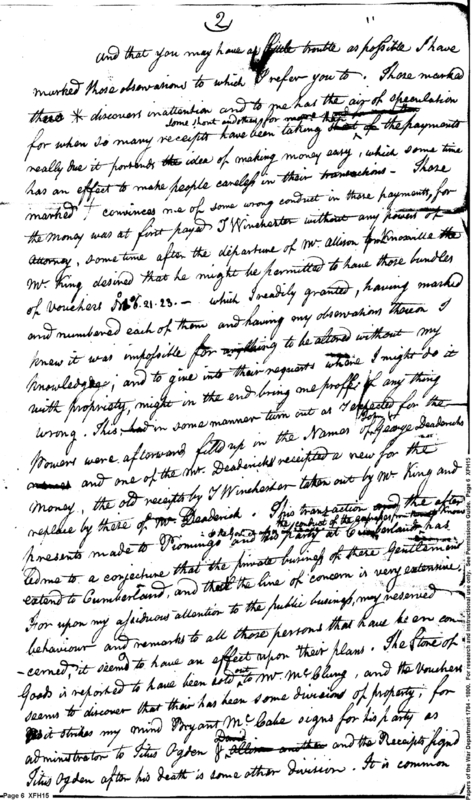 2
And that you may have as little trouble as possible I have
marked those observations to which I refer you to. Those marked
thus * discovers inattention and to me has the air of speculation
some short and others for
for when so many receipts have been taking short of the payments
really due it portends the idea of making money easy, which some time
has an effect to make people careless in their transactions - Those
marked † convinces me of some wrong conduct in these payments, for
the money was at first payed J Winchester without any powers of
Attorney, some time after the departure of Mr. Allison for Knoxville
Mr. King desired that he might be permitted to have those bundles
of Vouchers No. 8. 21. 23. — which I readily granted, having marked
and numbered each of them and having my observations thereon I
knew it was impossible for anything to be altered without my
knowledge; and to give into their requests where I might do it
with propriety, might in the end bring me proffs if any thing
wrong. This had in some manner turn out as I expected for the
Powers were afterward filld up in the Names of George Deadericks
and one of the Mr. Deadericks receipted a new for the
money, the old receipts by J Winchester taken out by Mr. King and
replace by these of Mr. Deaderick. This transaction and the after
presents made to Piomingo and his party at Cumberland has
led me to a conjecture that the private business of these Gentlemen
extend to Cumberland, and that the line of concern is very extensive.
For upon my assiduous attention to the public business, my reserved
behaviour and remarks to all those persons that have been con-
-cerned, it seems to have an effect upon their plans. The Store of
Goods is reported to have been sold to Mr. McClung, and the Vouchers
seems to discover that thair has been some divisions of property, for
it strikes my mind Bryant McCabe signs for his party as
administrator to Titus Ogden & David Allison another and the Receipts signd
Titus Ogden after his death is some other division. It is common
Page 6 XFH15
Papers of the War Department 1784 - 1800. For research and instructional use only. See Permissions Guide. Page 6 XFH15